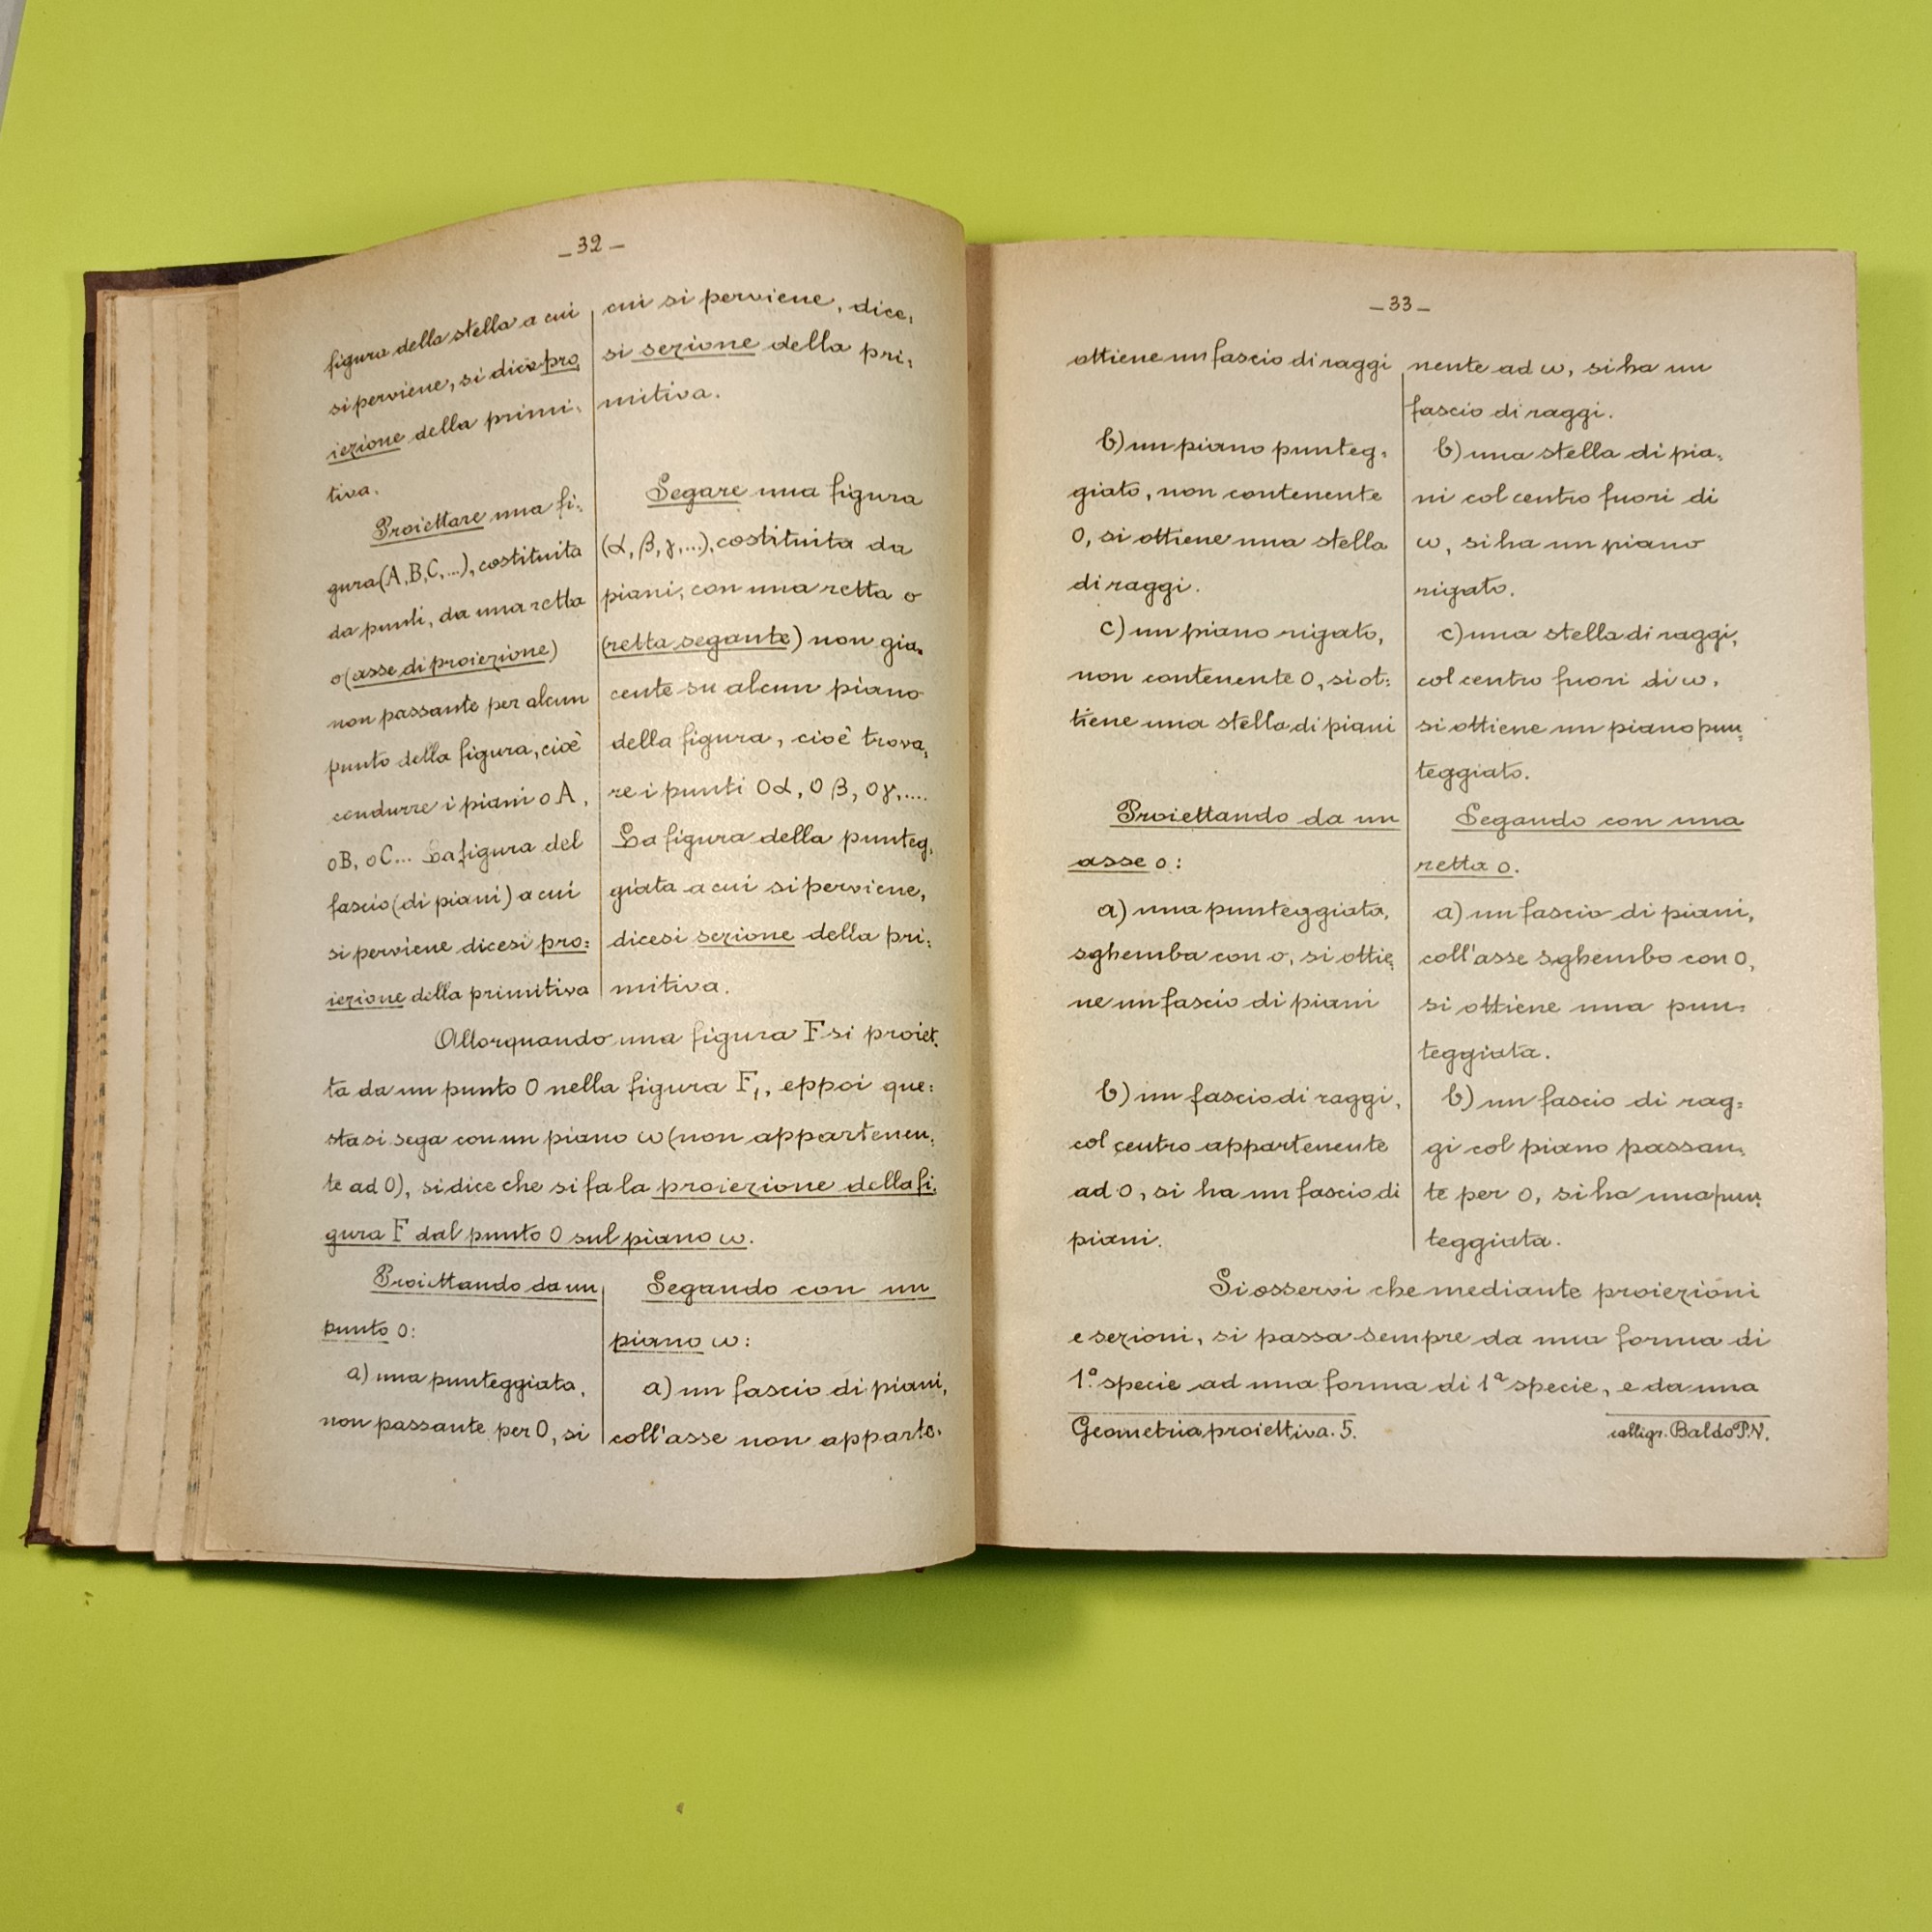 _32_
figura della stella a cui
si perviene, si dice pro,
iezione della primi,
tiva.
Proiettare una fi,
gura (A, B, C, ...), costituita
da punti, da una retta
o (asse di proiezione)
non passante per alcun
punto della figura, cioè
condurre i piani oA,
oB, oC... La figura del
fascio (di piani) a cui
si perviene dicesi pro=
iezione della primitiva
cui si perviene, dice,
si sezione della pri,
mitiva.
Segare una figura
(α, β, γ, ...), costituita da
piani, con una retta o
(retta segante) non gia,
cente su alcun piano
della figura, cioè trova,
re i punti Oα, Oβ, Oγ, ....
La figura della punteg,
giata a cui si perviene,
dicesi sezione della pri,
mitiva.
Allorquando una figura F si proiet,
ta da un punto O nella figura F₁, eppoi que=
sta si sega con un piano ω (non appartenen,
te ad O), si dice che si fa la proiezione della fi,
gura F dal punto O sul piano ω.
Proiettando da un
punto O:
a) una punteggiata,
non passante per O, si
Segando con un
piano ω:
a) un fascio di piani,
coll'asse non apparte,
_33_
ottiene un fascio di raggi
b) un piano punteg,
giato, non contenente
O, si ottiene una stella
di raggi.
c) un piano rigato,
non contenente O, si ot=
tiene una stella di piani
Proiettando da un
asse o:
a) una punteggiata,
sghemba con o, si ottie,
ne un fascio di piani
b) un fascio di raggi,
col centro appartenente
ad o, si ha un fascio di
piani.
nente ad ω, si ha un
fascio di raggi.
b) una stella di pia,
ni col centro fuori di
ω, si ha un piano
rigato.
c) una stella di raggi,
col centro fuori di ω,
si ottiene un piano pun,
teggiato.
Segando con una
retta o.
a) un fascio di piani,
coll'asse sghembo con o,
si ottiene una pun=
teggiata.
b) un fascio di rag=
gi col piano passan,
te per o, si ha una pun,
teggiata.
Si osservi che mediante proiezioni
e sezioni, si passa sempre da una forma di
1ª specie ad una forma di 1ª specie, e da una
Geometria proiettiva. 5.
calligr. Baldo P.V.